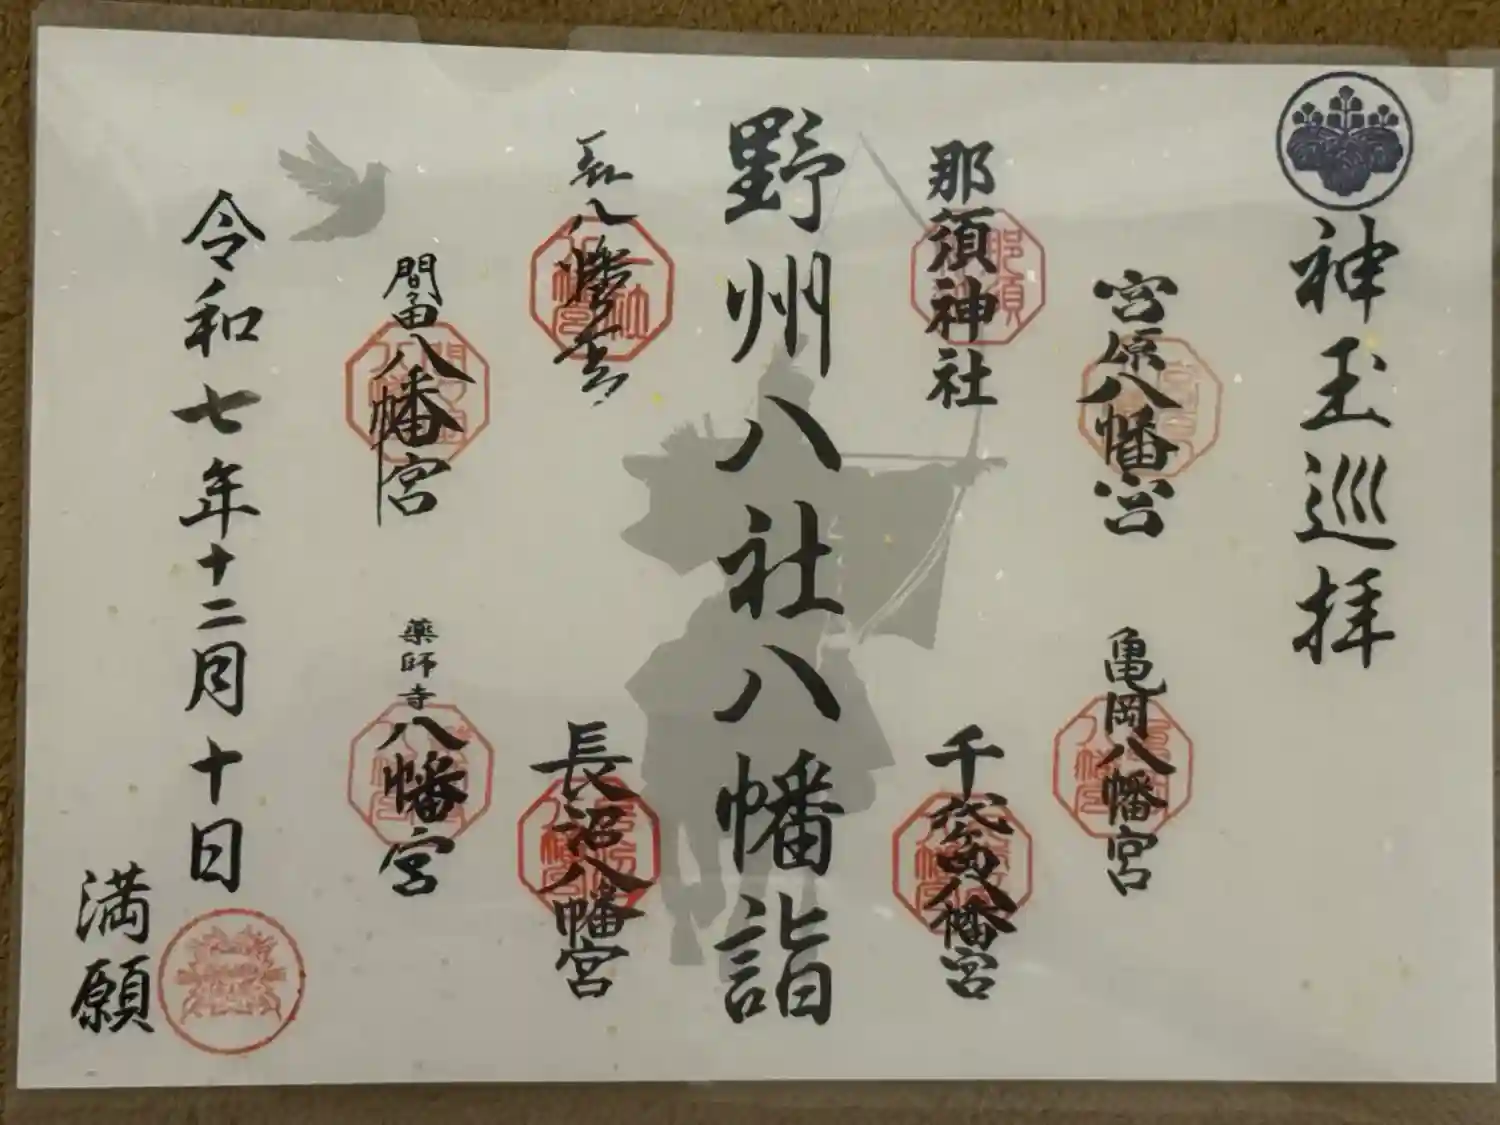 神玉巡拝
宮原八幡宮
亀岡八幡宮
那須神社
千代ヶ岡八幡宮
野州八社八幡詣
八幡宮
長沼八幡宮
間々田八幡宮
薬師寺八幡宮
令和七年十二月十日
満願